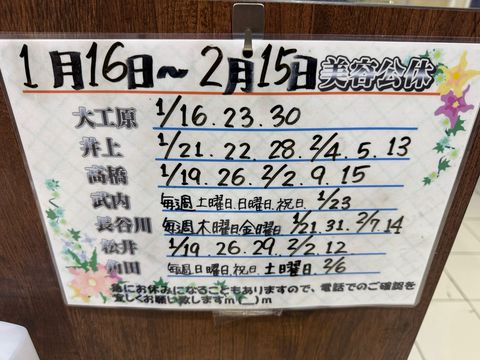 1月16日~2月15日 美容公休
大工原 1/16.23.30
井上 1/21.22.28.2/4.5.13
高橋 1/19.26.2/2.9.15
武内 毎週土曜日.日曜日.祝日.1/23
長谷川 毎週木曜日金曜日 1/21.31.2/7.14
松井 1/19.26.29.2/2.12
角田 毎週日曜日.祝日 土曜日.2/6
急にお休みになることもありますので、電話でのご確認を
宜しくお願い致しますm(__)m